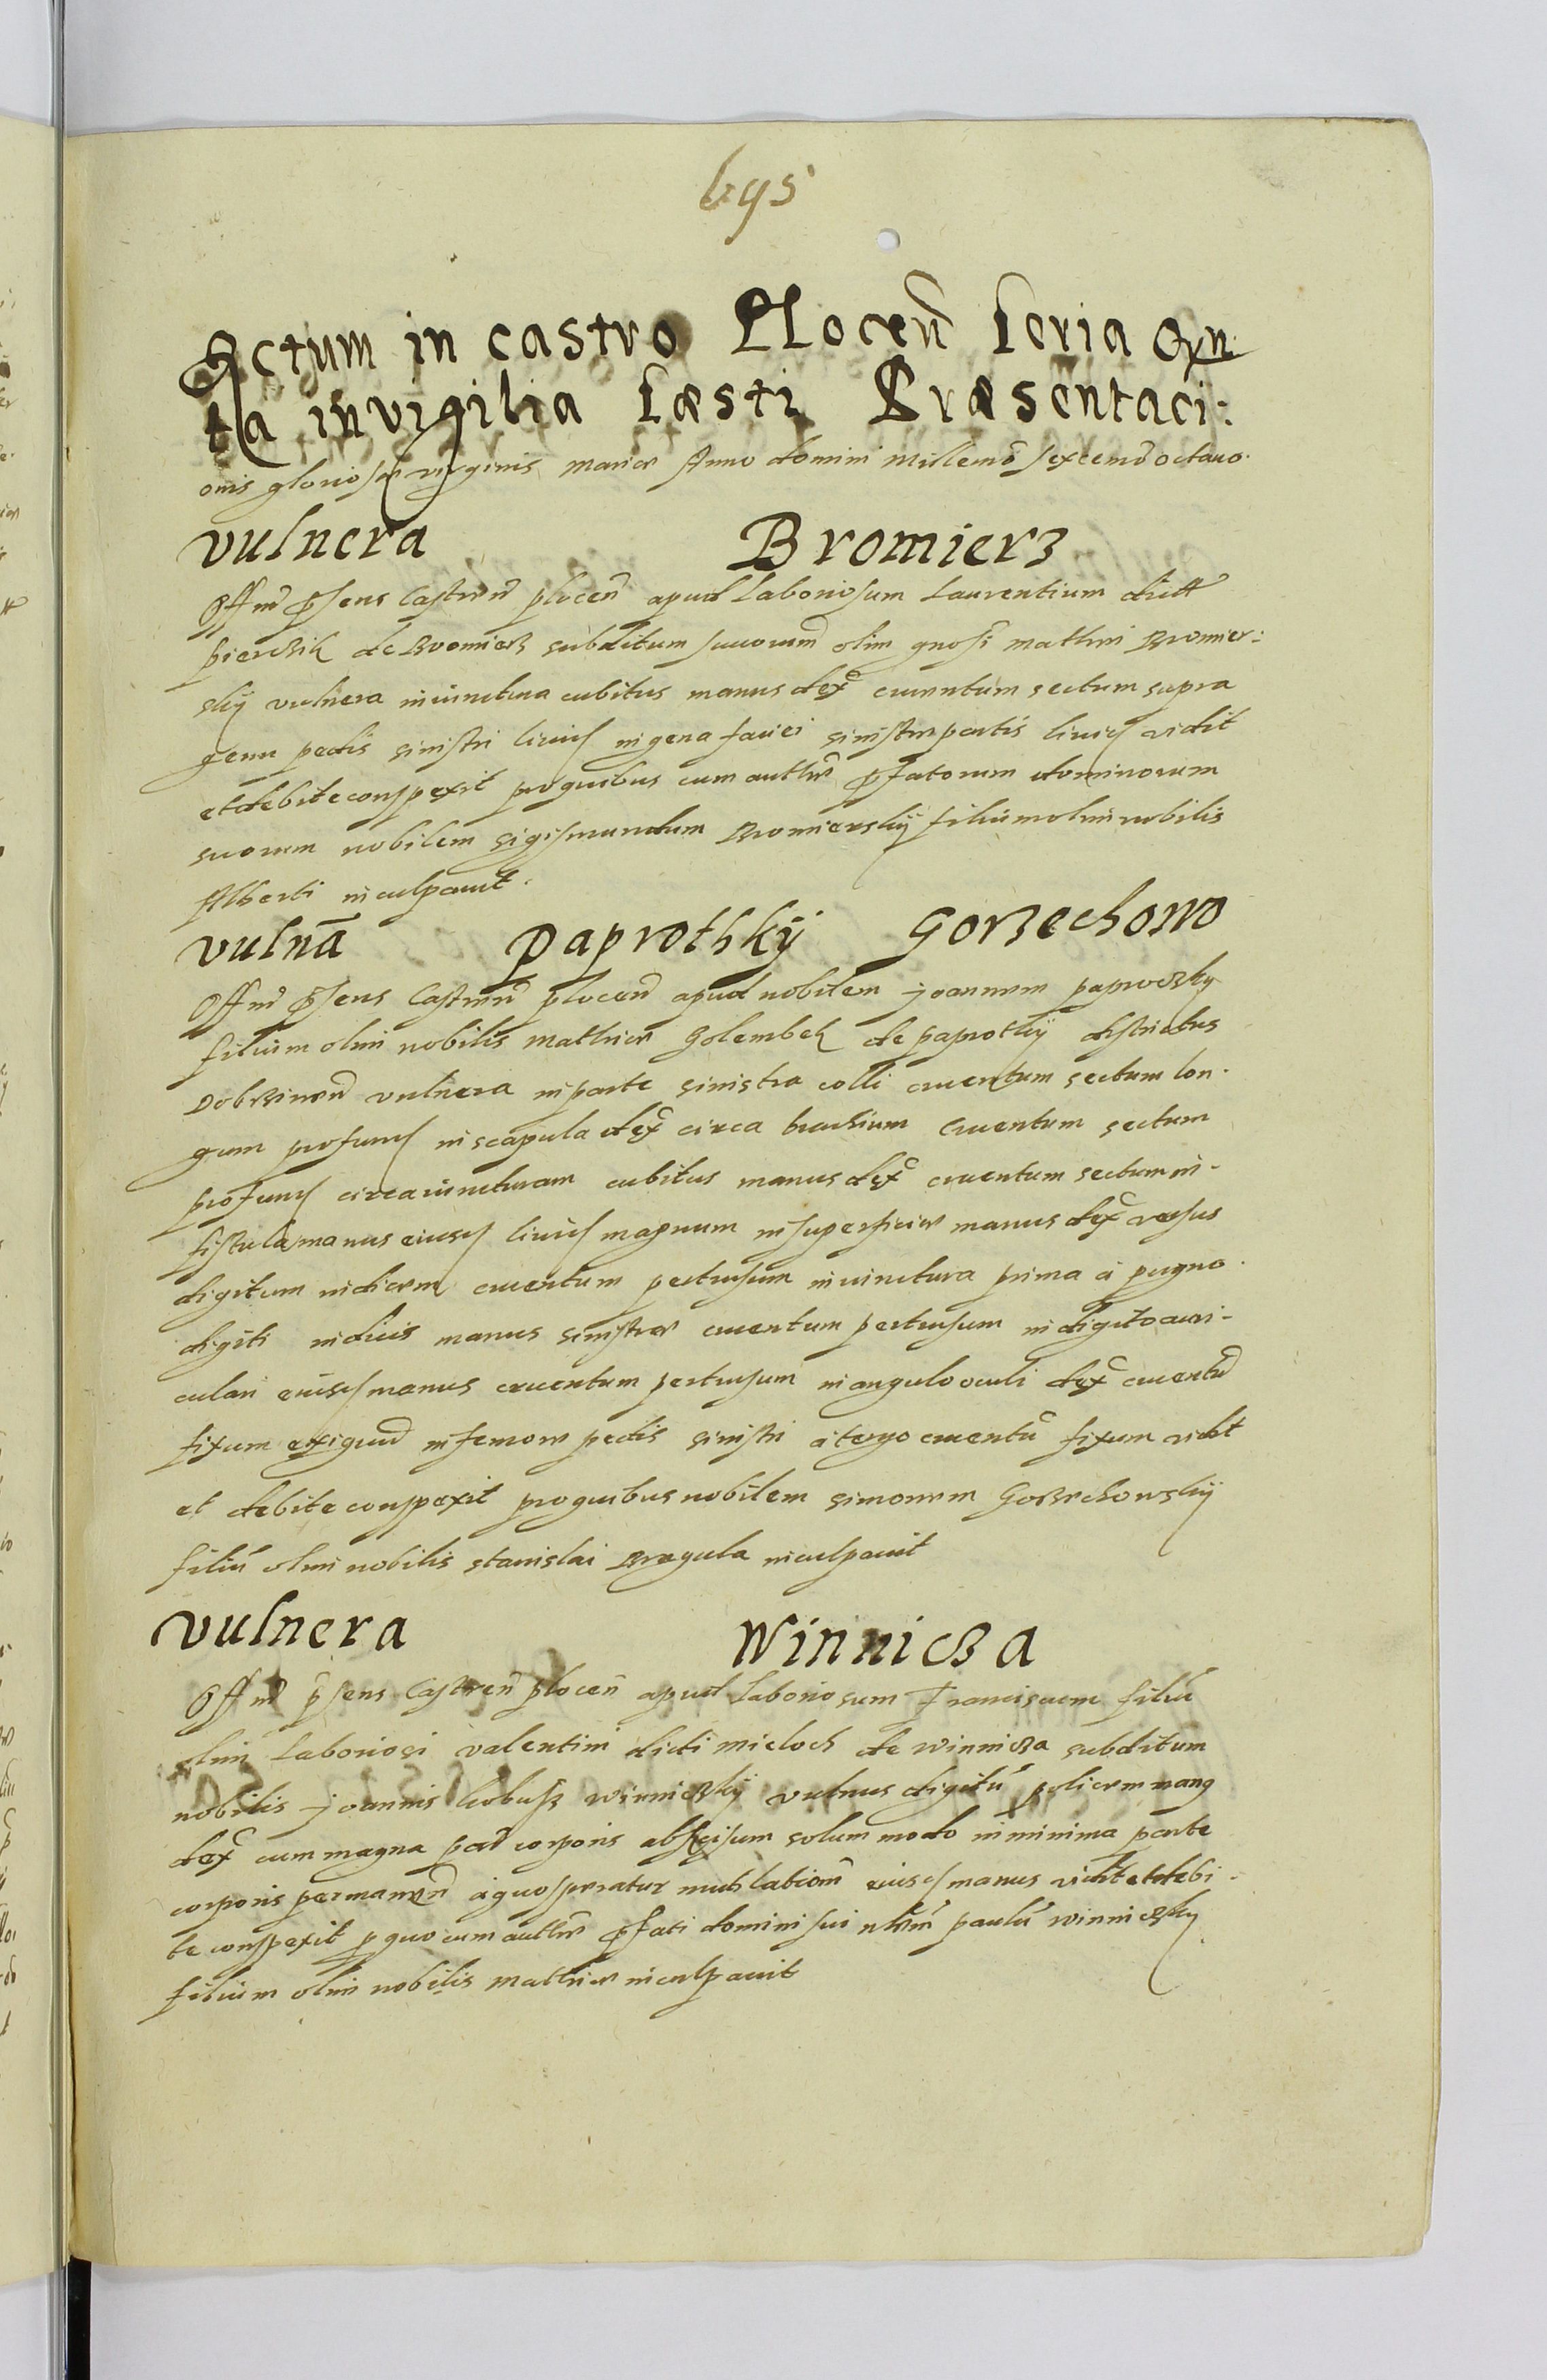 695
Actum in castro Plocen feria Qvn
ta in vigilia Fæsti Præsentaci:
onis gloriosæ virginis Mariæ Anno domini Millemo sexcenmo octauo.
vulnera Bromierz
Offm pñsens Castren plocen apud Laboriosum Laurentium dict
de Bromierz subditum sucorum olim gnosi Mathei Bromier:
skij vulnera in iunctura cubitus manus dex cruentum sectum supra
genu pedis sinistri liuid in gena faciei sinistræ partis liuid vidit
et debite conspexit pro quibus cum authte pfatorum dominorum
suorum nobilem Sigismundum Bromierskij filium olim nobilis
Alberti inculpauit.
vulna Paprothkij Gorzechowo
Offm pñsens Castren plocen apud nobilem Joannem paproczky
filium olim nobilis Mathiæ Golembek de paprotkij districtus
Dobrzinen vulnera in parte sinistra colli cruentum sectum lon.
gum profund in scapula dex circa brachium cruentum sectum
profund circa iuncturam cubitus manus dex cruentum sectum in.
fistula manus eiusd liuid magnum in superficie manus dex versus
digitum indicem cruentum pertusum in iunctura prima a pugno.
digiti indicis manus sinistræ cruentum pertusum in digito auri-
culari eiusd manus cruentum pertusum in angulo oculi dex cruentu
fixum exiguum in femore pedis sinistri a tergo cruentu fixum vidit
et debite conspexit pro quibus nobilem Simonem Gorzechowskij
filiu olim nobilis Stanislai Bragula inculpauit
vulnera Winnicza
Offm pñsens Castren plocen apud Laboriosum Franciscum filiu
olim Laboriosi Valentini dicti Mieloch de Winnicza subditum
nobilis Joannis Winniczkij vulnus digitu policem mang
dex cum magna par corporis abscisum solum modo in minima parte
corporis permanen a quo speratur mutilationm eiusd manus vidit et debi-
te conspexit p quo cum authte pfati domini sui nblm paulu Winniczky
filium olim nobilis Mathiæ inculpauit